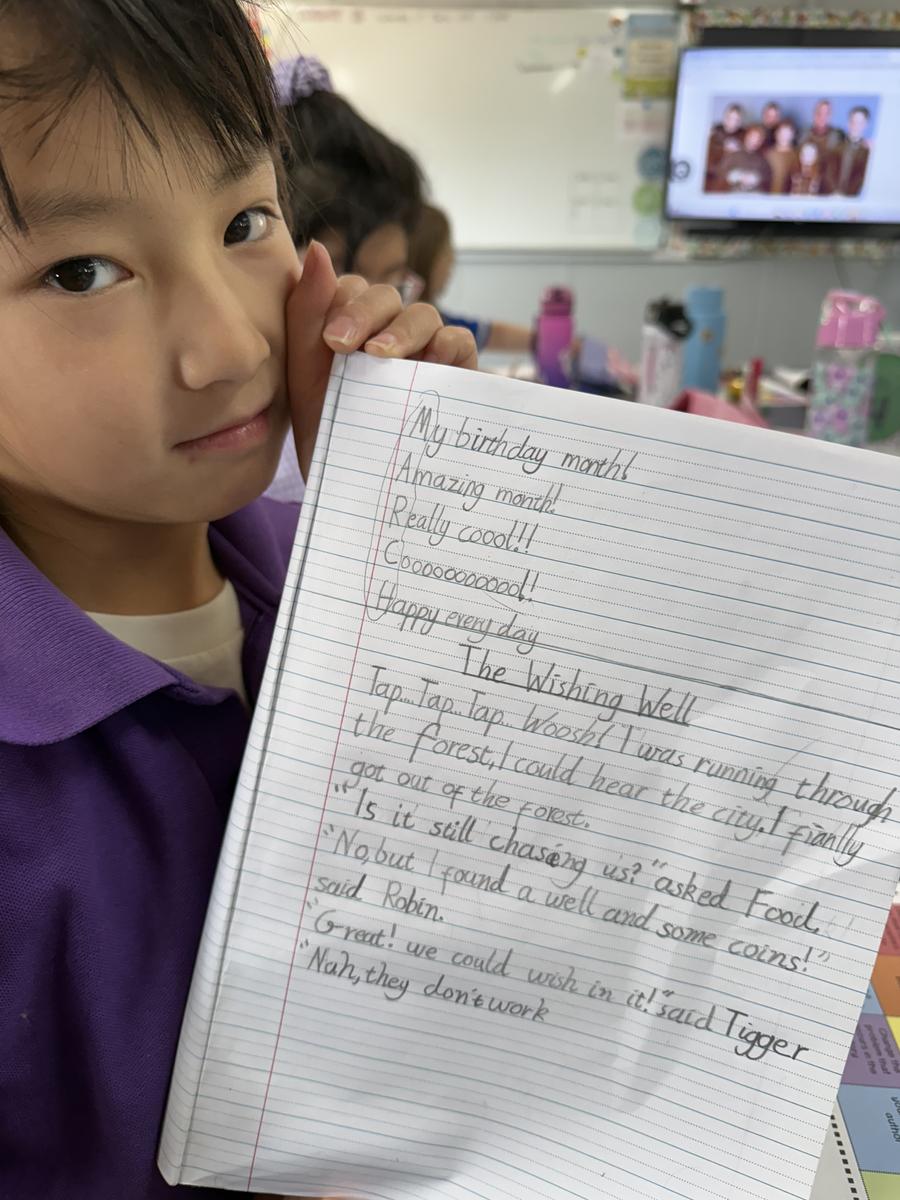 My birthday month!
Amazing month!
Really coool!!
Coooooooooool!
Happy every day
The Wishing Well
Tap...Tap..Tap.. Woosh! I was running through
the forest, I could hear the city. I fianlly
got out of the forest.
"Is it still chasing us?" asked Food
"No, but I found a well and some coins!"
said Robin.
"Great! we could wish in it!" said Tigger
"Nah, they don't work